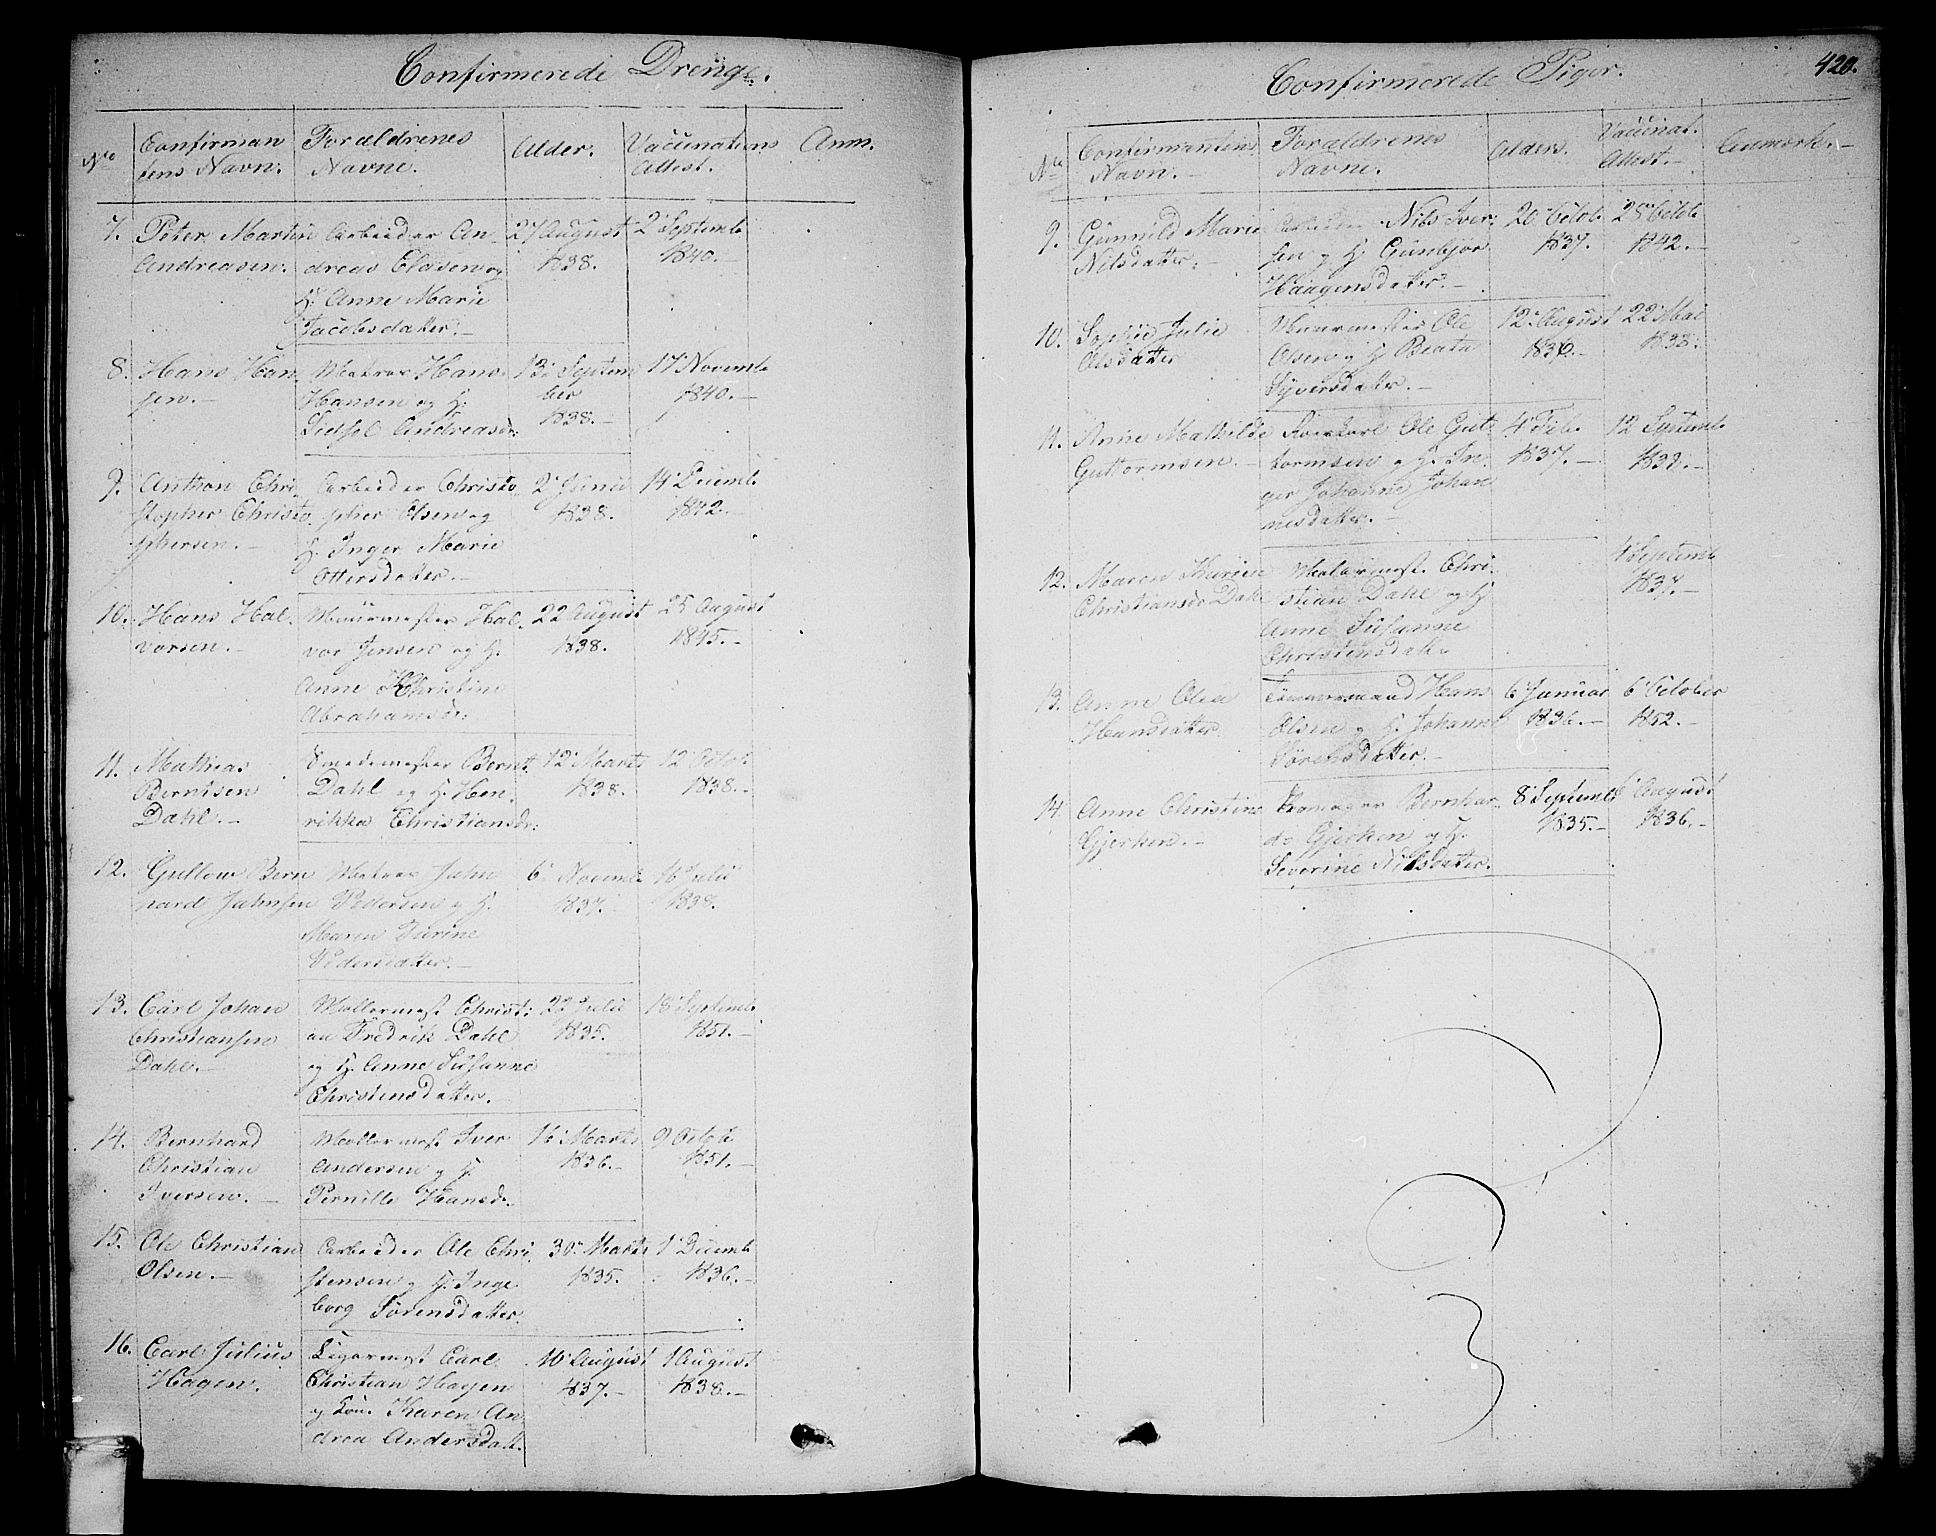 Confirmerede Drenge.
No
Confirman
tens Navn.
Forældrenes
Navne.
Alder.
Vaccinations
Attest.
Anm.
7. Peter Martin
Andreasen.
Arbeider An-
dreas Olasen og
H. Anne Marie
Jacobsdatter.
27 August
1838.
2 Septemb
1840.
8. Hans Han
sen.
Matros Hans
Hansen og H.
Andreasd:
13 Septem
ber
1838.
17 Novemb
1840.
9. Anthon Chri
stopher Christo
phersen.
Arbeider Christo
pher Olsen og
H. Inger Marie
Ottersdatter.
2 Juni
1838.
14 Decemb
1842.
10. Hans Hal
vorsen.
Muurmester Hal
vor Jensen og H.
Anne Christine
Abrahamsdr:
22 August
1838.
25 August
1845.
11. Mathias
Berntsen
Dahl.
Smedemester Bernt
Dahl og H. Hen
rikka Christiansdr:
12 Marts
1838.
12 Octob
1838.
12. Gullow Bern
hard Jahnsen
Matros Jahn
Pedersen og H.
Maren Turine
Pedersdatter.
6 Novemb
1837.
16 Juli
1838.
13. Carl Johan
Christiansen
Dahl.
Mallermest Christi
an Fredrik Dahl
og H. Anne Susanne
Christensdatter.
22 Juli
1835.
18 Septemb
1851.
14. Bernhard
Christian
Iversen.
Mallermest Iver
Andersen og H.
Pernille Hansdr.
16 Marts
1836.
9 Octob
1851.
15. Ole Christian
Olsen.
Arbeider Ole Chri
stensen og H. Inge
borg Sørensdatter.
30 Marts
1835.
1 Decemb
1836.
16. Carl Julius
Hagen.
Carl
Christian Hagen
og Karen An
drea Andersdatt.
10 August
1837.
1 August
1838.
Confirmerede Piger.
420.
No
Confirmantens
Navn.
Forældrenes
Navne.
Alders.
Vaccinat.
Attest.
Anmærk.
9. Gunnild Marie
Nilsdatter.
Arbeider Nils Iver
sen og H. Gunbjør
Haagensdatter.
20 Octob
1837.
25 Octob
1842.
10. Sophie Julie
Olsdatter
Muurmester Ole
Olsen og H. Beata
Syversdatter.
12 August
1836.
22 Mai
1838.
11. Anne Mathilde
Guttormsen.
Ole Gut
tormsen og H. In
ger Johanne Johan
nesdatter.
4 Feb.
1837.
12 Septemb
12. Maren Thurine
Christiansdr Dahl
Malermest. Chri
stian Dahl og H
Anne Susanne
Christensdatt.
4 Septemb
1837.
13. Anne Olea
Hansdatter
Tømmermand Hans
Olsen og H. Johanne
Sørensdatter.
6 Januar
1836.
6 October
1852.
14. Anne Christine
Gjerken.
Bernhar
dt Gjerken og H.
Severine Nilsdatter.
8 Septemb
1835.
6 August
1836.